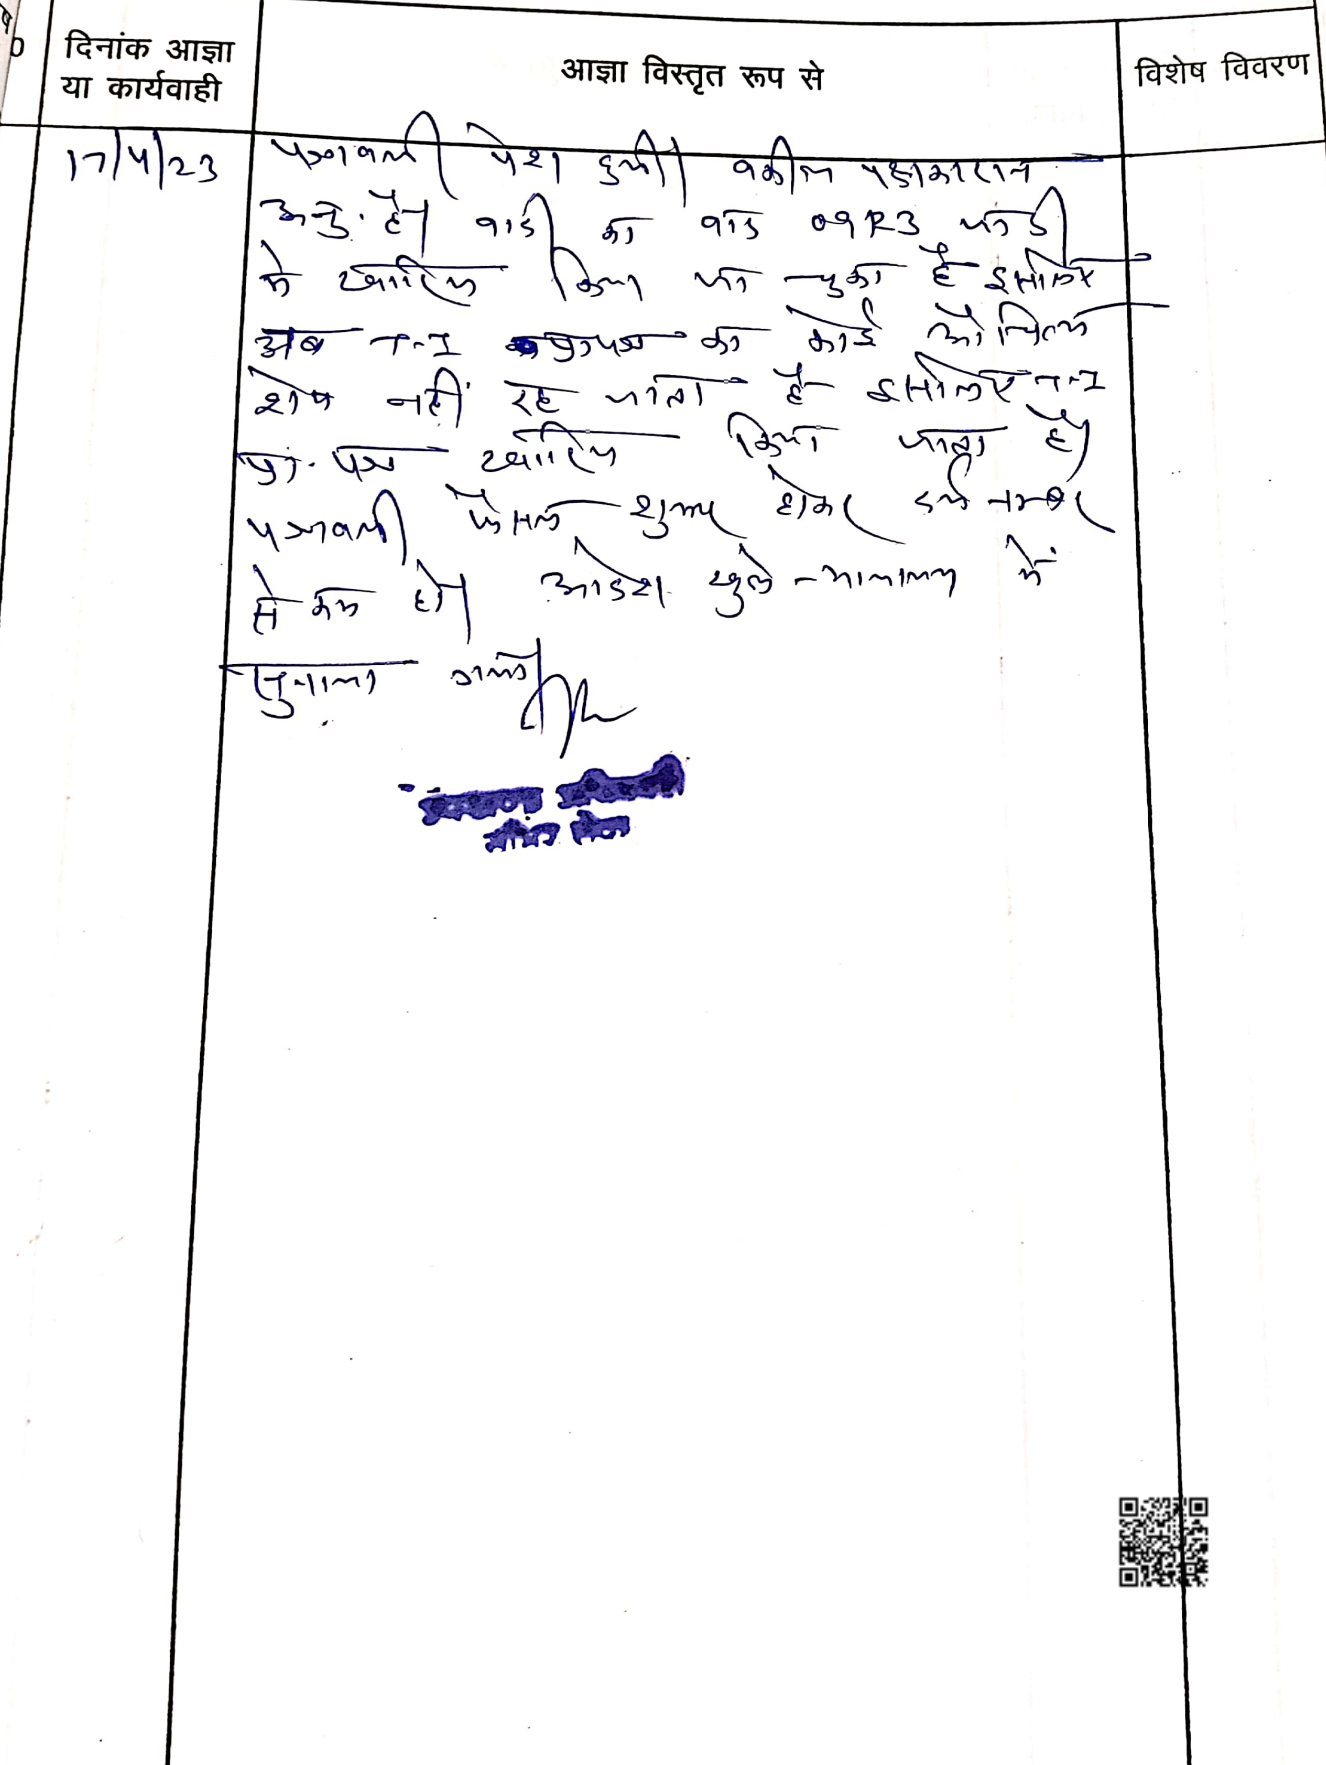 दिनांक आज्ञा
या कार्यवाही
आज्ञा विस्तृत रूप से
विशेष विवरण
17/4/23
पत्रावली पेश हुयी। वकील पक्षकारान
अनु. है। वादी का वाद 09R3 जा.दी
मे खारिज किया जा चुका है इसलिए
अब T-I प्रा पत्र का कोई औचित्य
शेष नहीं रह जाता है इसलिए T-I
प्रा. पत्र खारिज किया जाता है।
पत्रावली फैसल शुमार होकर दर्ज नम्बर
से कम हो। आदेश खुले न्यायालय में
सुनाया गया।